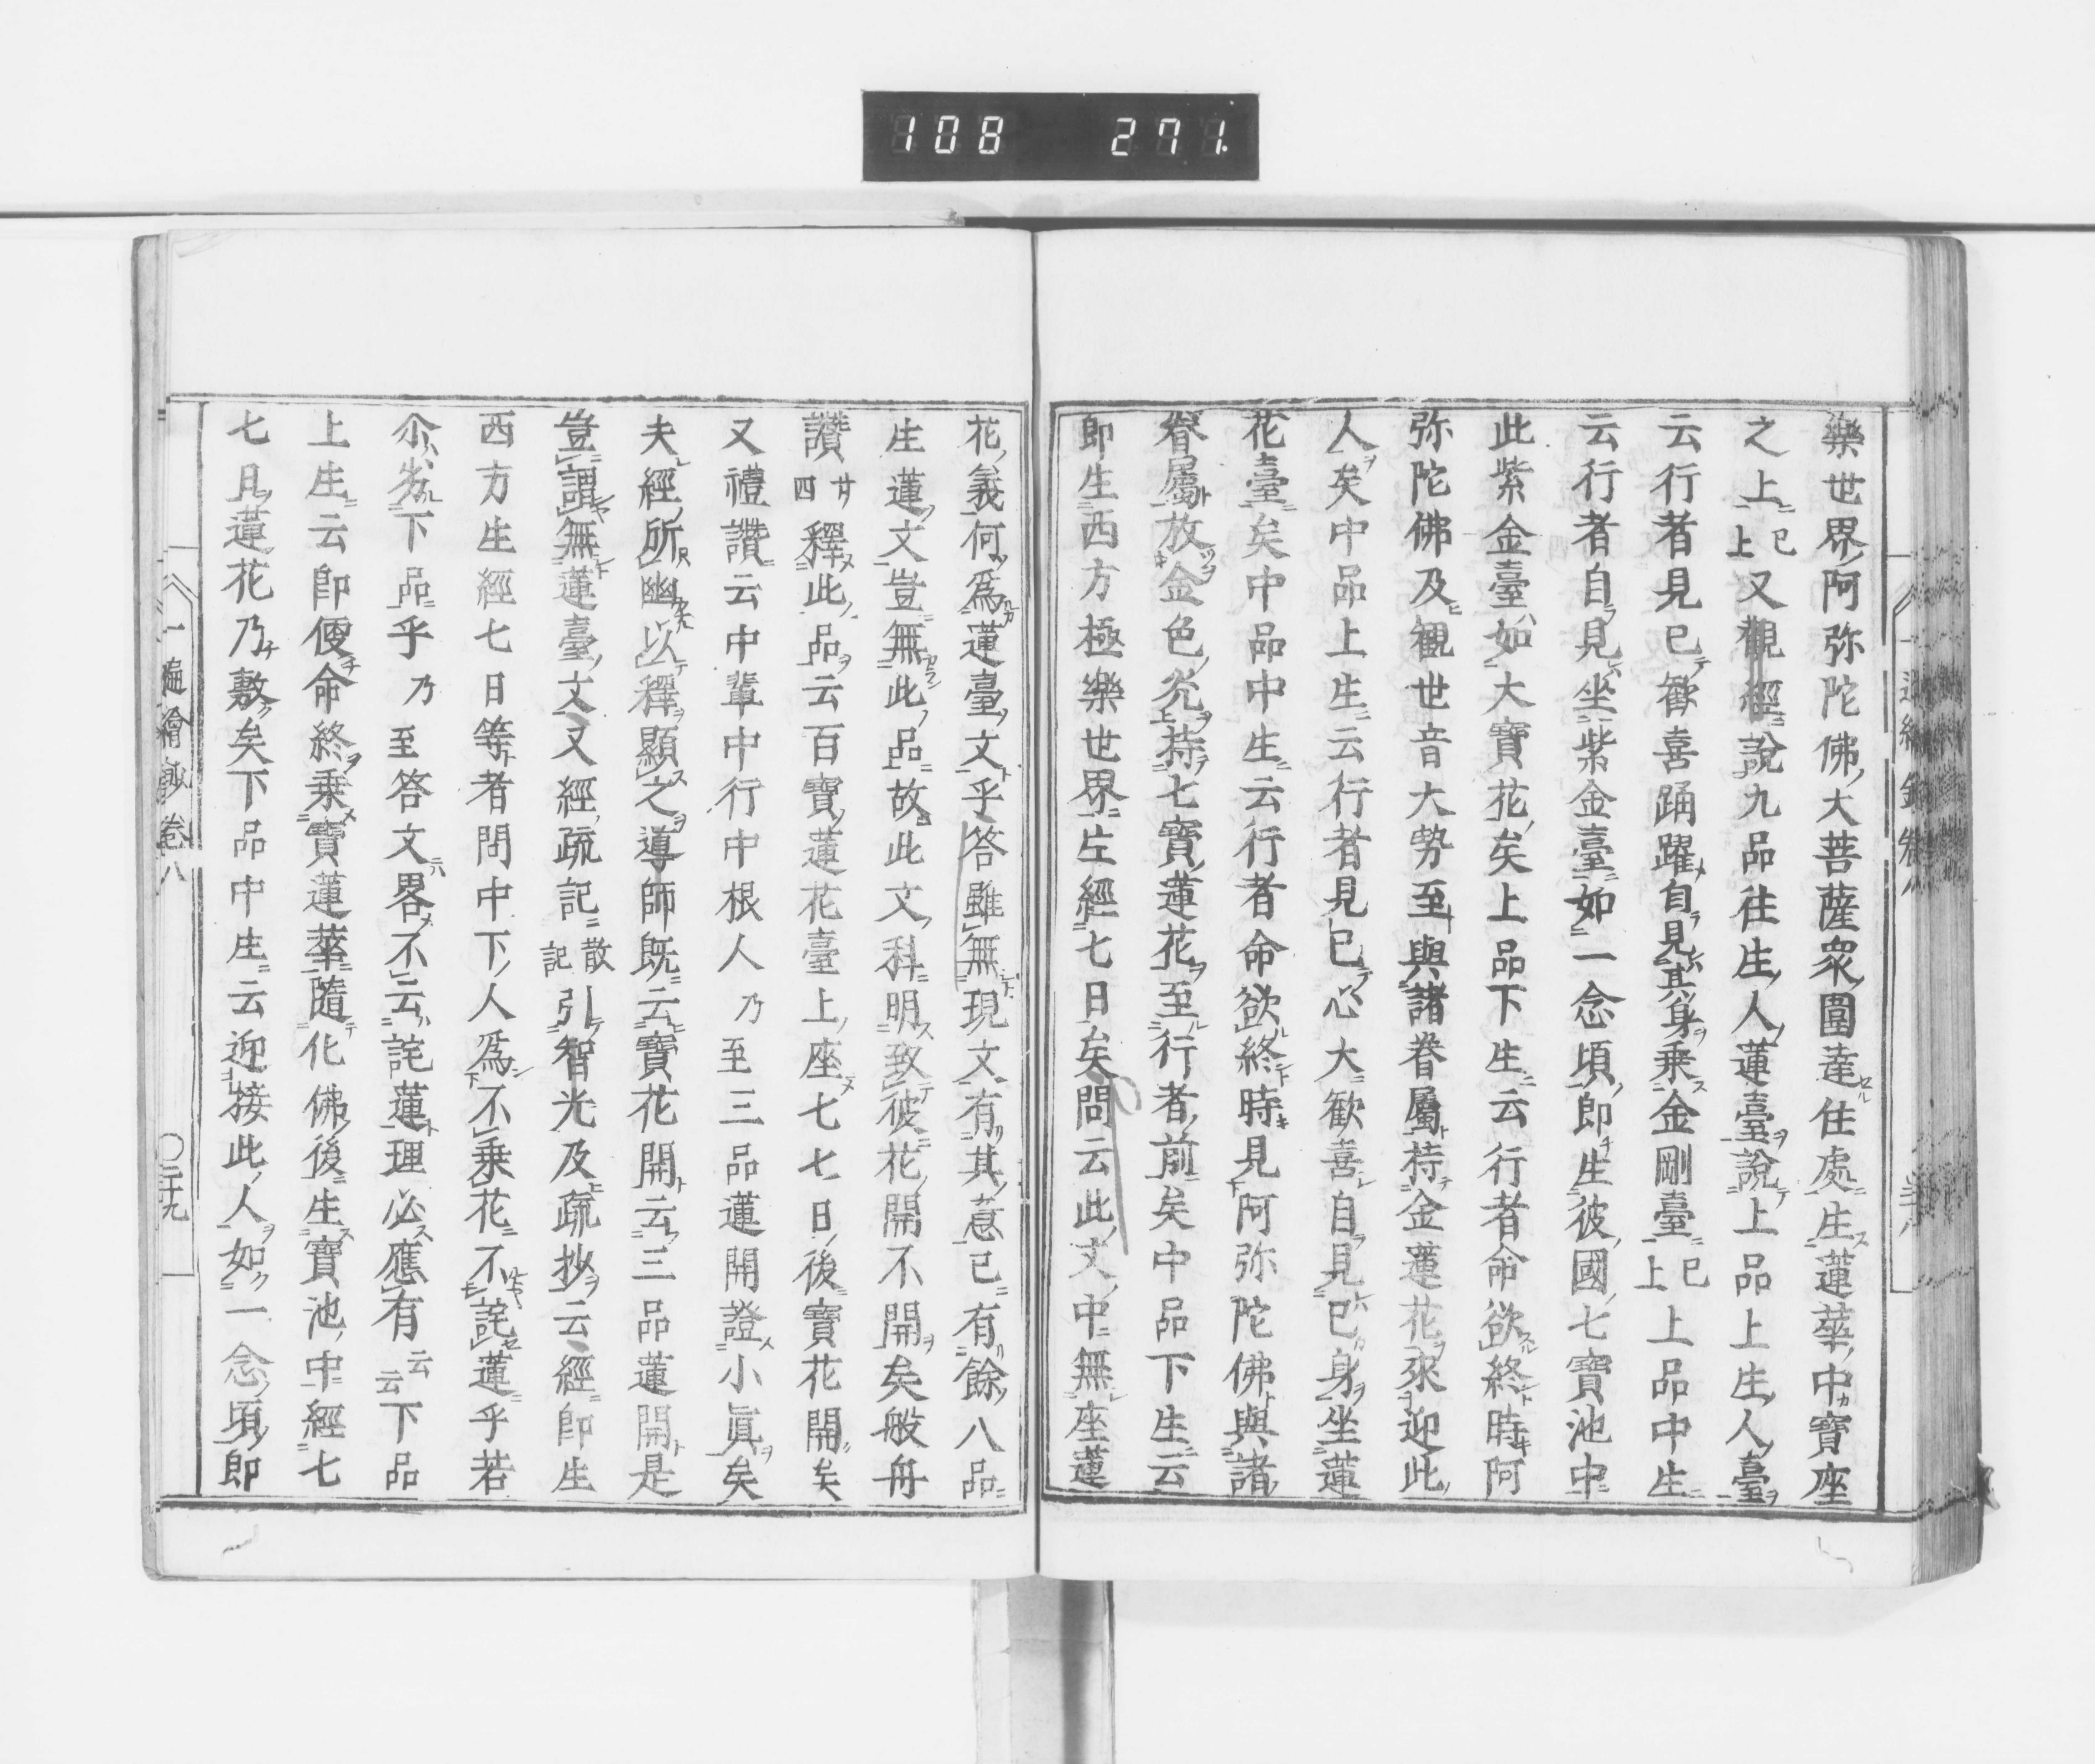 108 271.
樂世界阿弥陀佛大菩薩衆圍遶住處生蓮華中寶座
之上已上又觀經說九品往生人蓮臺說上品上生人臺
云行者見已歡喜踊躍自見其身乘金剛臺已上上品中生
云行者自見坐紫金臺如一念頃即生彼國七寶池中
此紫金臺如大寶花矣上品下生云行者命欲終時阿
弥陀佛及觀世音大勢至與諸眷屬持金蓮花來迎此
人矣中品上生云行者見已心大歡喜自見已身坐蓮
花臺矣中品中生云行者命欲終時見阿弥陀佛與諸
眷屬放金色光持七寶蓮花至行者前矣中品下生云
即生西方極樂世界左經七日矣問云此文中無座蓮
花義何爲蓮臺文乎答雖無現文有其意已有餘八品
生蓮文豈無此品故此文科明致彼花開不開矣般舟
讚廿四釋此品云百寶蓮花臺上座七七日後寶花開矣
又禮讚云中輩中行中根人乃至三品蓮開證小眞矣
夫經所幽以釋顯之導師既云寶花開云三品蓮開是
豈謂無蓮臺文又經疏記散記引智光及疏抄云經即生
西方生經七日等者問中下人爲不乘花不詫蓮乎若
尒劣下品乎乃至答文畧不云詫蓮理必應有云云下品
上生云即便命終乘寶蓮華隨化佛後生寶池中經七
七日蓮花乃敷矣下品中生云迎接此人如一念頃即
一遍繪鈔卷八 〇二十九